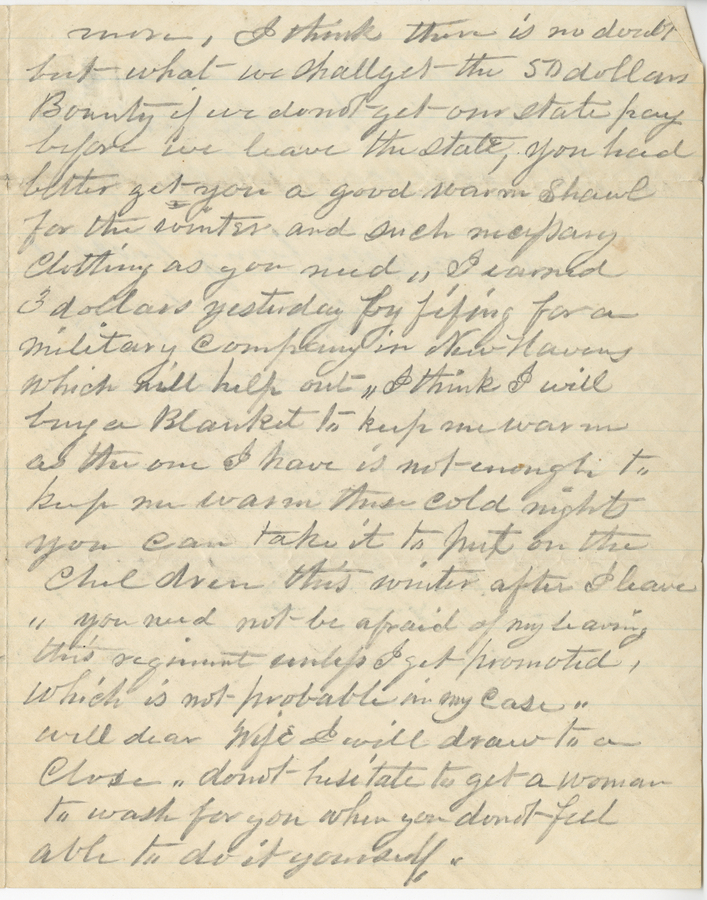 more, I think there is no doubt
but what we shall get the 50 dollars
Bounty if we donot get our state pay
before we leave the state, you had
better get you a good warm Shawl
for the winter and such necessary
Clothing as you need ,, I earned
3 dollars yesterday by fifing for a
military Company in New Haven,
which will help out ,, I think I will
buy a Blanket to keep me warm
as the one I have is not enough to
keep me warm these cold nights
you can take it to put on the
Chel dren this winter after I leave
,, you need not be afraid of my leaving
this regiment unless I get promoted,
which is not probable in my case ,,
well dear Wife I will draw to a
Close ,, donot hesitate to get a woman
to wash for you when you donot feel
able to do it yourself ,,